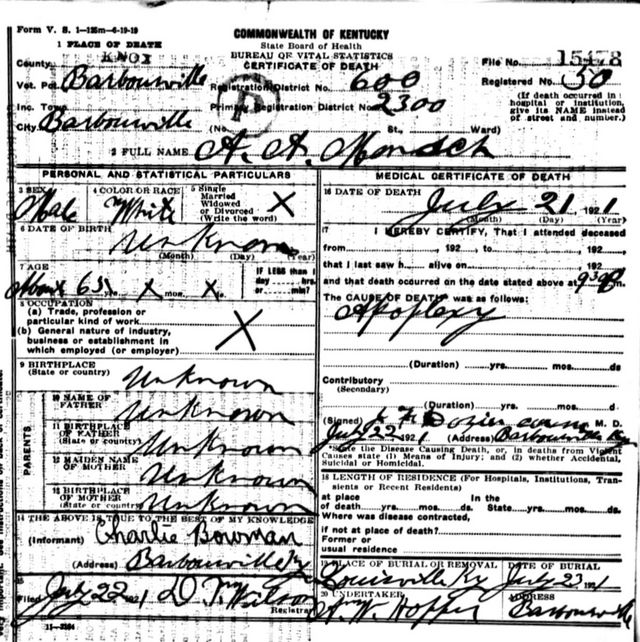 Form V. S. 1-125m-6-19-19
COMMONWEALTH OF KENTUCKY
State Board of Health
BUREAU OF VITAL STATISTICS
CERTIFICATE OF DEATH
1 PLACE OF DEATH
County KNOX
File No. 15478
Vot. Pct Barbourville
Registration District No. 600
Registered No. 50
Inc. Town
Primary Registration District No. 2300
(If death occurred in a hospital or institution, give its NAME instead of street and number.)
City Barbourville (No. St., Ward)
2 FULL NAME A. A. Mondsch
PERSONAL AND STATISTICAL PARTICULARS
3 SEX Male
4 COLOR OR RACE White
5 Single Married Widowed or Divorced (Write the word) X
6 DATE OF BIRTH Unknown
(Month) (Day) (Year)
7 AGE
About 65 yrs. X mos. X ds.
IF LESS than 1 day hrs. or min.?
8 OCCUPATION
(a) Trade, profession or particular kind of work X
(b) General nature of industry, business or establishment in which employed (or employer)
9 BIRTHPLACE (State or country) Unknown
PARENTS
10 NAME OF FATHER Unknown
11 BIRTHPLACE OF FATHER (State or country) Unknown
12 MAIDEN NAME OF MOTHER Unknown
13 BIRTHPLACE OF MOTHER (State or country) Unknown
14 THE ABOVE IS TRUE TO THE BEST OF MY KNOWLEDGE
(Informant) Charlie Bowman
(Address) Barbourville Ky
15
Filed July 22 1921 D. T. Wilson
Registrar
11-3184
MEDICAL CERTIFICATE OF DEATH
16 DATE OF DEATH July 21 1921
(Month) (Day) (Year)
17 I HEREBY CERTIFY, That I attended deceased
from 192 to 192
that I last saw h alive on 192
and that death occurred on the date stated above at 9:30 P.
The CAUSE OF DEATH was as follows:
Apoplexy
(Duration) yrs. mos. ds
Contributory
(Secondary)
(Duration) yrs. mos. d
(Signed) Dozier M. D.
July 22 1921 (Address) Barbourville Ky
*State the Disease Causing Death, or, in deaths from Violent Causes state (1) Means of Injury; and (2) whether Accidental, Suicidal or Homicidal.
18 LENGTH OF RESIDENCE (For Hospitals, Institutions, Transients or Recent Residents)
at place of death yrs. mos. ds. In the State yrs. mos. ds
Where was disease contracted,
if not at place of death?
Former or usual residence
19 PLACE OF BURIAL OR REMOVAL Louisville Ky
DATE OF BURIAL July 23 1921
20 UNDERTAKER W. Hopper
ADDRESS Barbourville